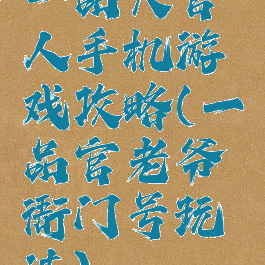 一品大官
人手机游
戏攻略(一
品官老爷
衙门号玩
法)